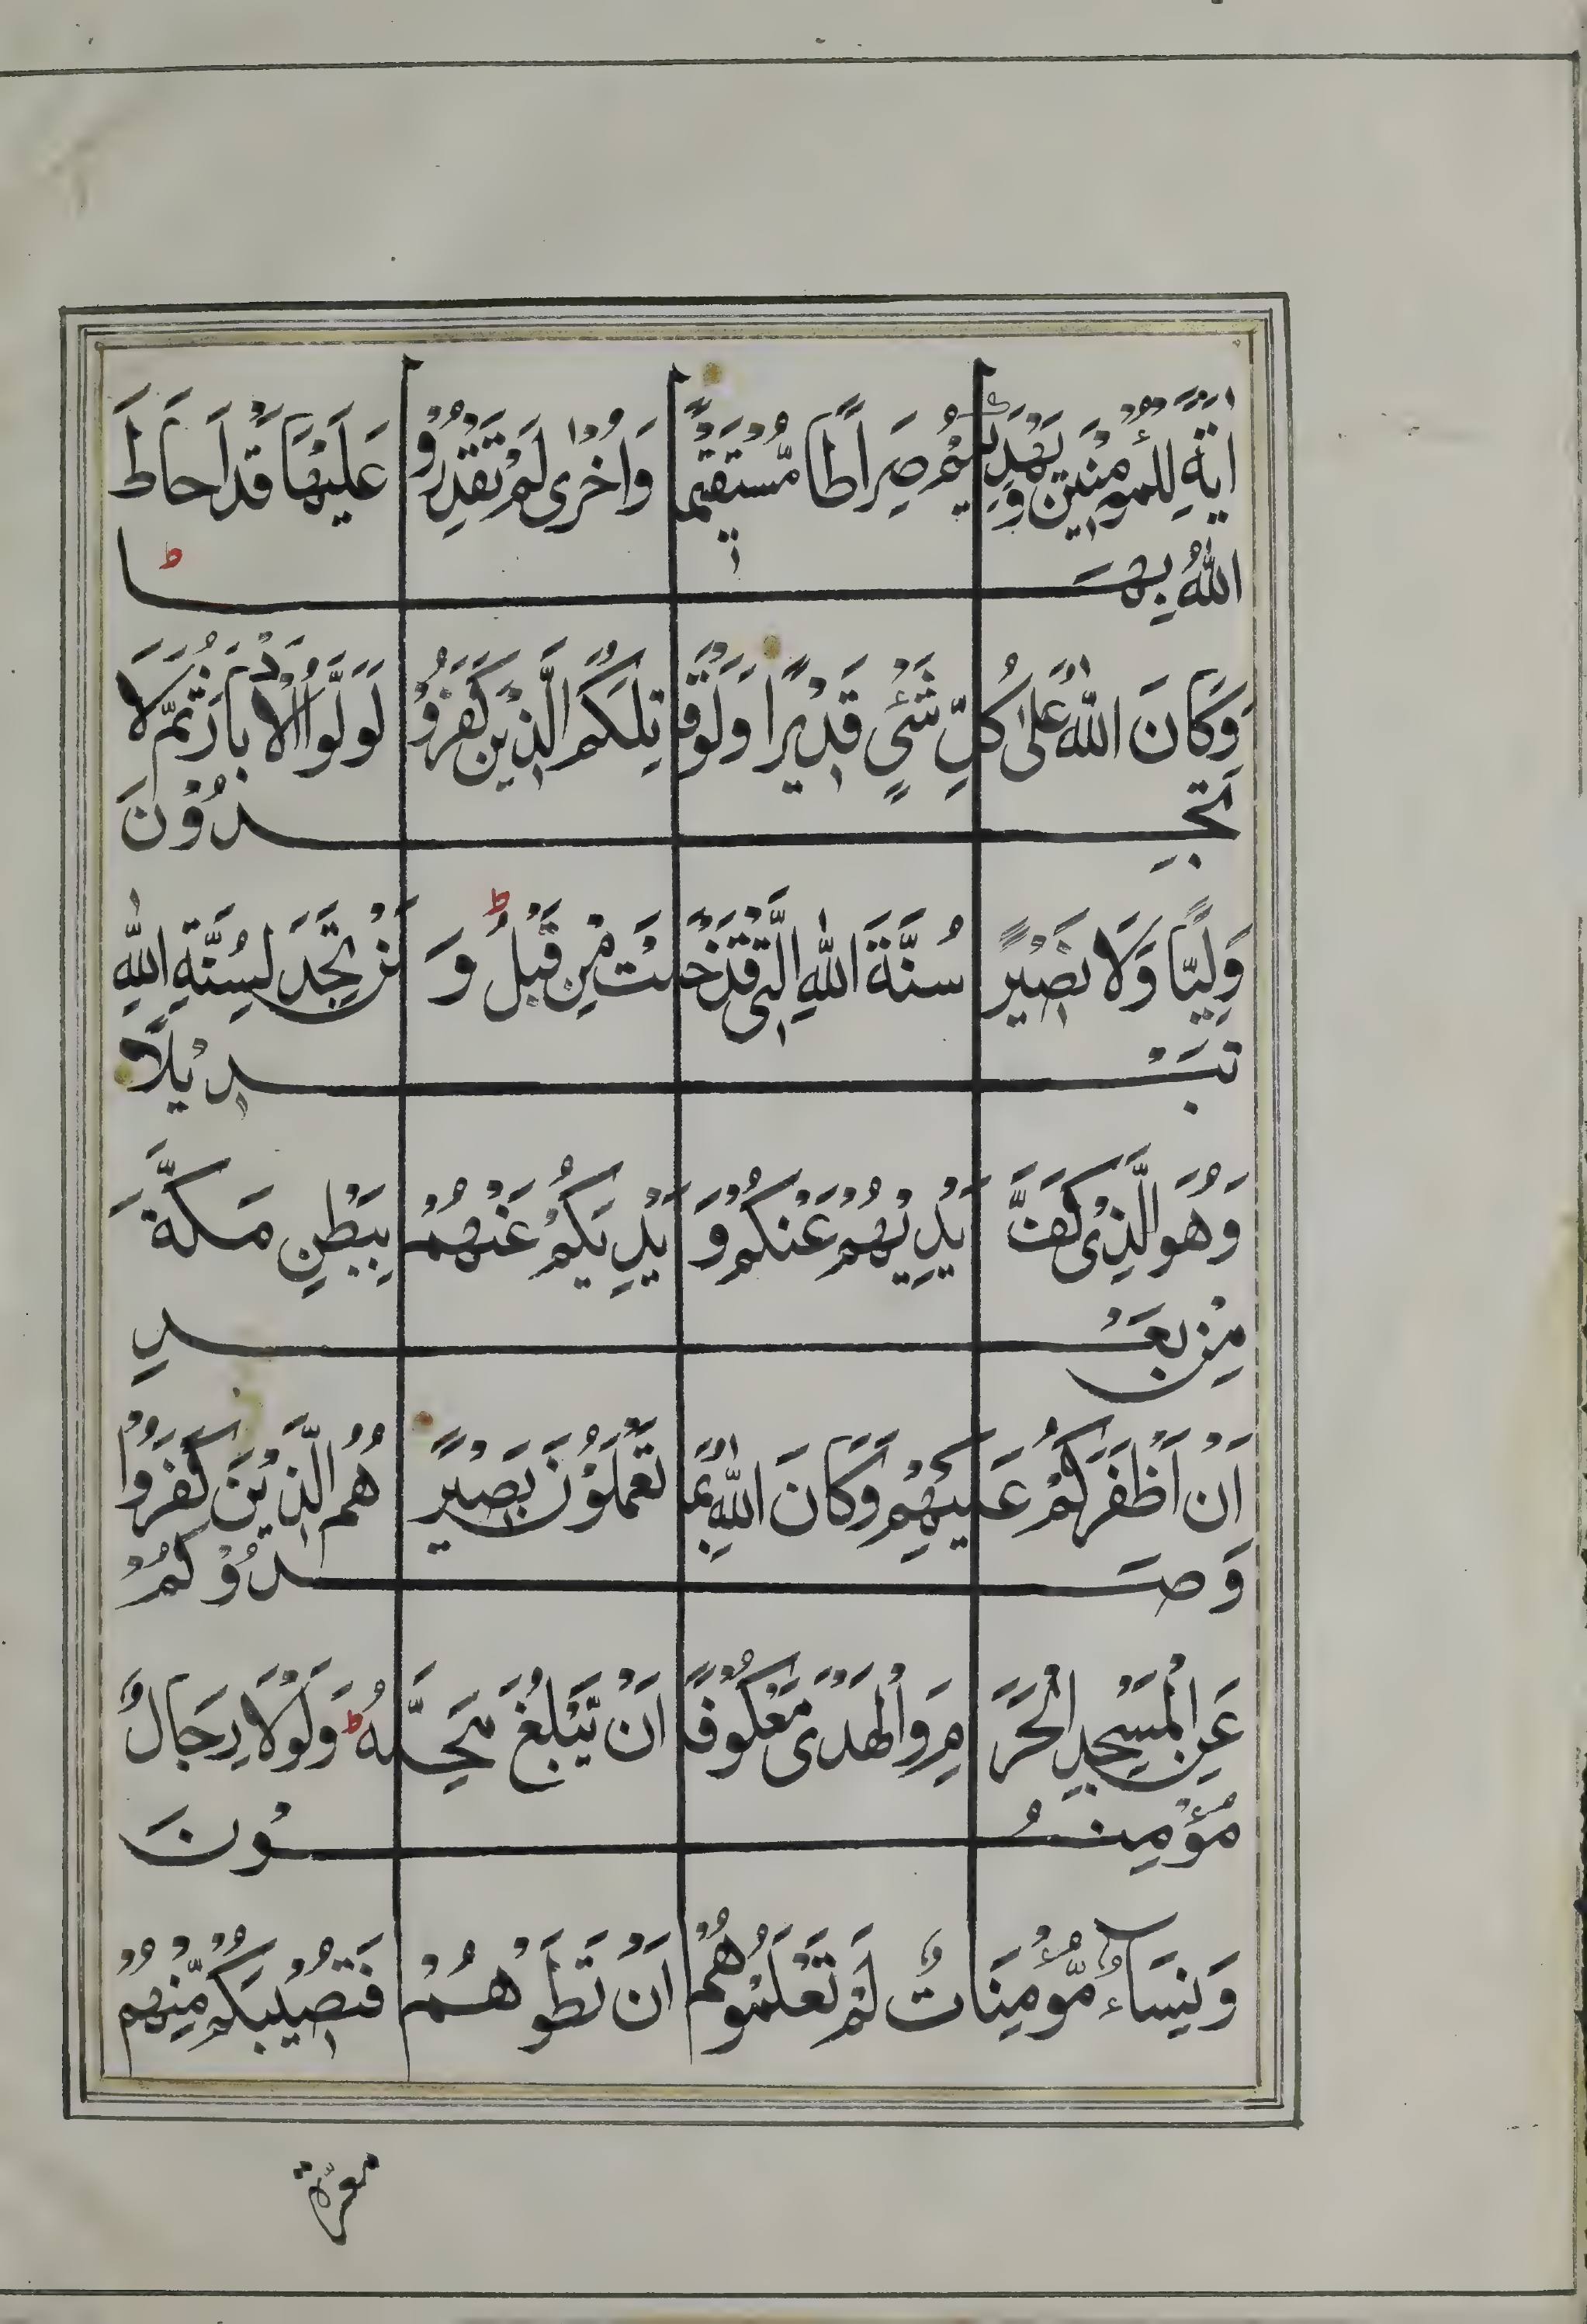 اٰيَةً لِّلْمُؤْمِنِيْنَ وَيَهْدِيَكُمْ صِرَاطًا مُّسْتَقِيْمًا وَاُخْرٰى لَمْ تَقْدِرُوْا عَلَيْهَا قَدْ اَحَاطَ
اللّٰهُ بِهَا ط
وَكَانَ اللّٰهُ عَلٰى كُلِّ شَيْءٍ قَدِيْرًا وَلَوْ قَاتَلَكُمُ الَّذِيْنَ كَفَرُوْا لَوَلَّوُا الْاَدْبَارَ ثُمَّ لَا
يَجِدُوْنَ
وَلِيًّا وَّلَا نَصِيْرً سُنَّةَ اللّٰهِ الَّتِيْ قَدْ خَلَتْ مِنْ قَبْلُ ط وَلَنْ تَجِدَ لِسُنَّةِ اللّٰهِ
تَبْدِيْلًا
وَهُوَ الَّذِيْ كَفَّ اَيْدِيَهُمْ عَنْكُمْ وَاَيْدِيَكُمْ عَنْهُمْ بِبَطْنِ مَكَّةَ
مِنْ بَعْدِ
اَنْ اَظْفَرَكُمْ عَلَيْهِمْ وَكَانَ اللّٰهُ بِمَا تَعْمَلُوْنَ بَصِيْرً هُمُ الَّذِيْنَ كَفَرُوْا
وَصَدُّوْكُمْ
عَنِ الْمَسْجِدِ الْحَرَامِ وَالْهَدْىَ مَعْكُوْفًا اَنْ يَّبْلُغَ مَحِلَّهٗ ط وَلَوْلَا رِجَالٌ
مُؤْمِنُوْنَ
وَنِسَاءٌ مُّؤْمِنَاتٌ لَمْ تَعْلَمُوْهُمْ اَنْ تَطَوْهُمْ فَتُصِيْبَكُمْ مِّنْهُمْ
معرّة